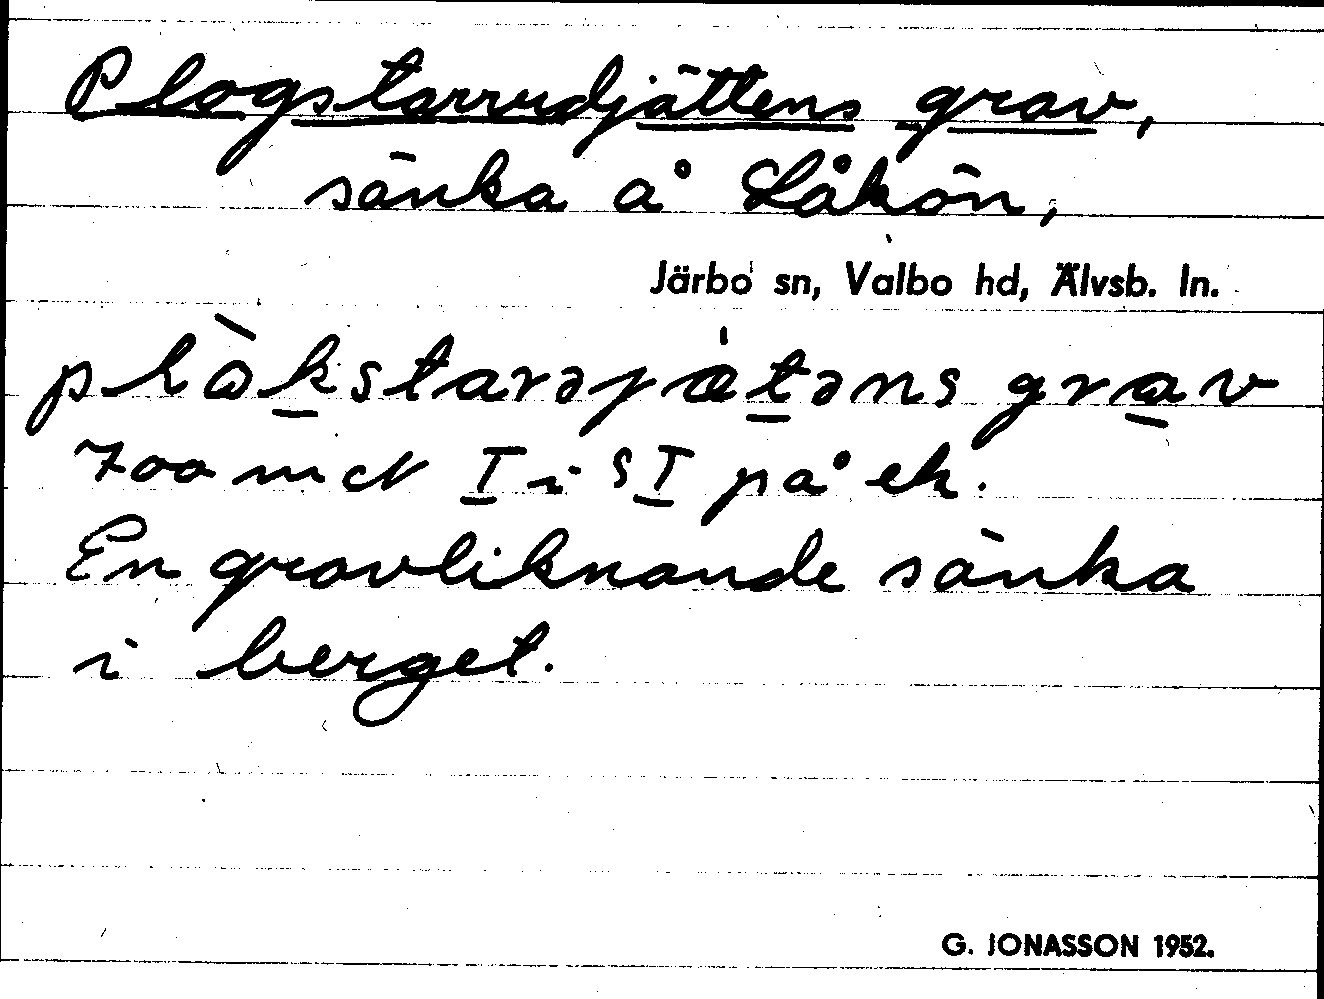 Plogstarrudjättens grav,
sänka å Låkön,
Järbo sn, Valbo hd, Älvsb. ln.
grav
700 m N I i SI på ek.
En gravliknande sänka
i berget.
G. JONASSON 1952.